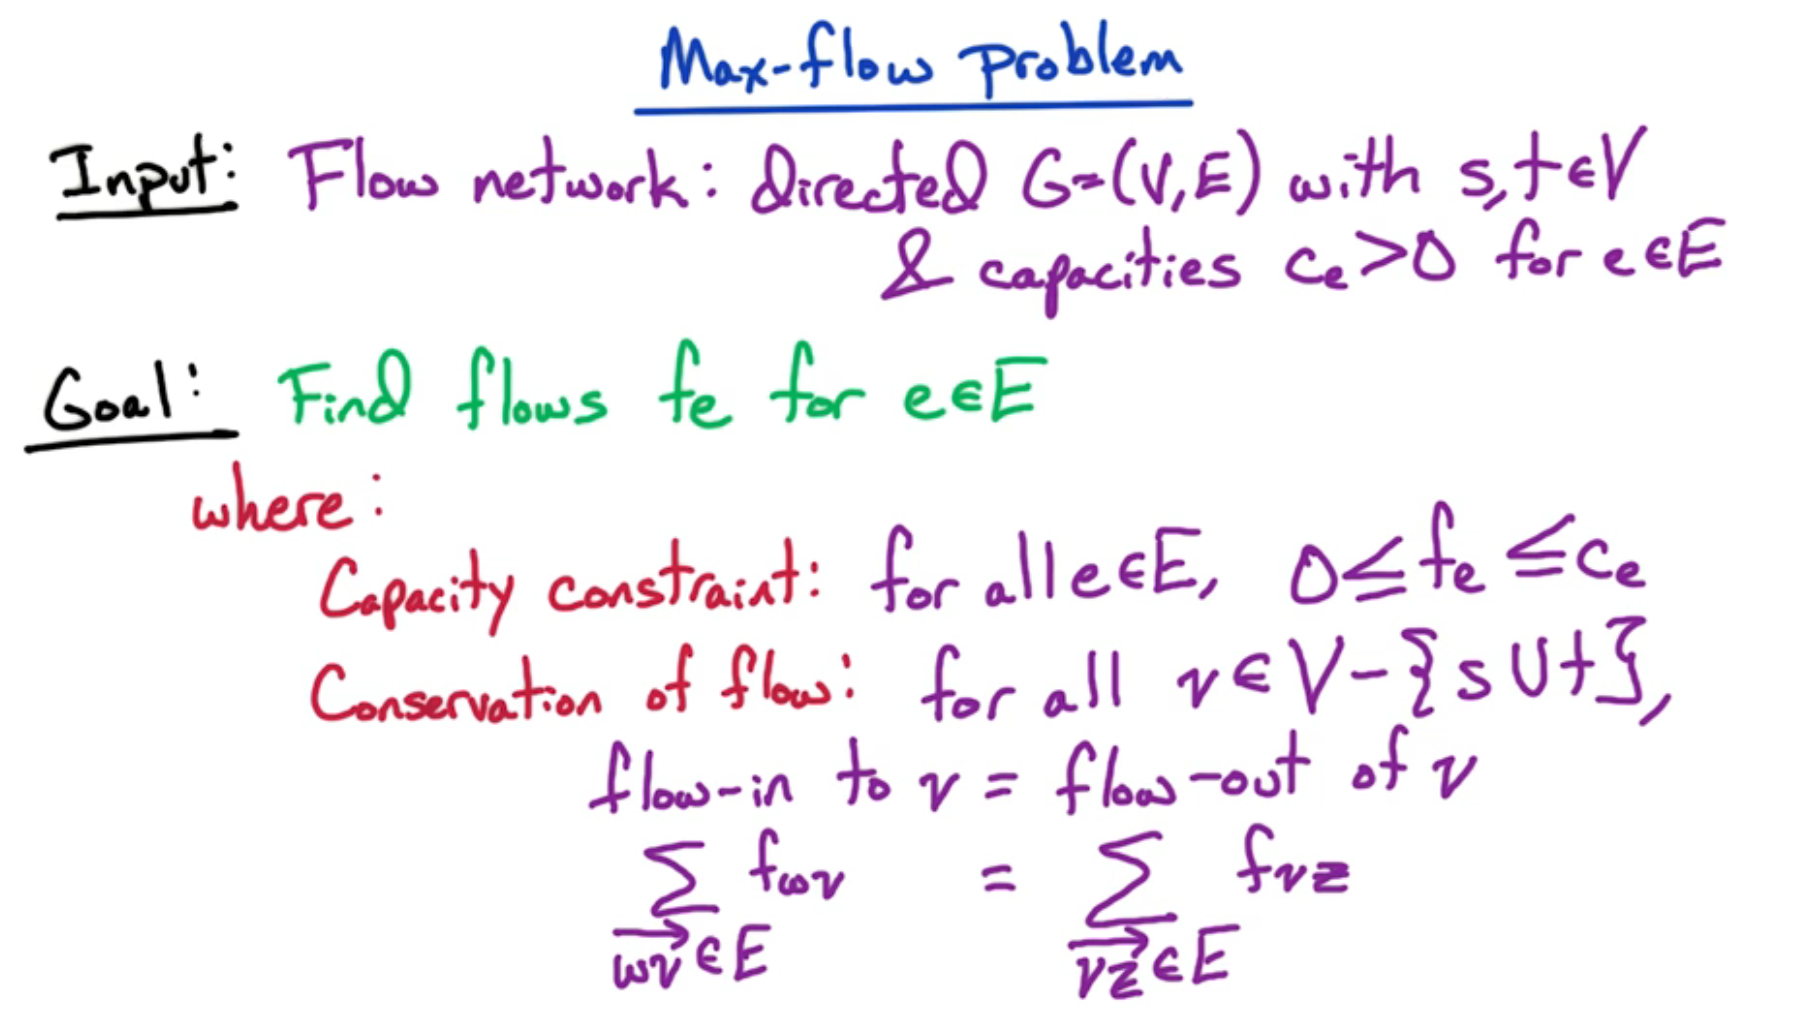 Max-flow problem
Input: Flow network: directed G=(V,E) with s,t∈V
& capacities cₑ>0 for e∈E
Goal: Find flows fₑ for e∈E
where:
Capacity constraint: for all e∈E, 0≤fₑ≤cₑ
Conservation of flow: for all v∈V-{s∪t},
flow-in to v = flow-out of v
∑ f_wv = ∑ f_vz
w⃗v⃗∈E v⃗z⃗∈E